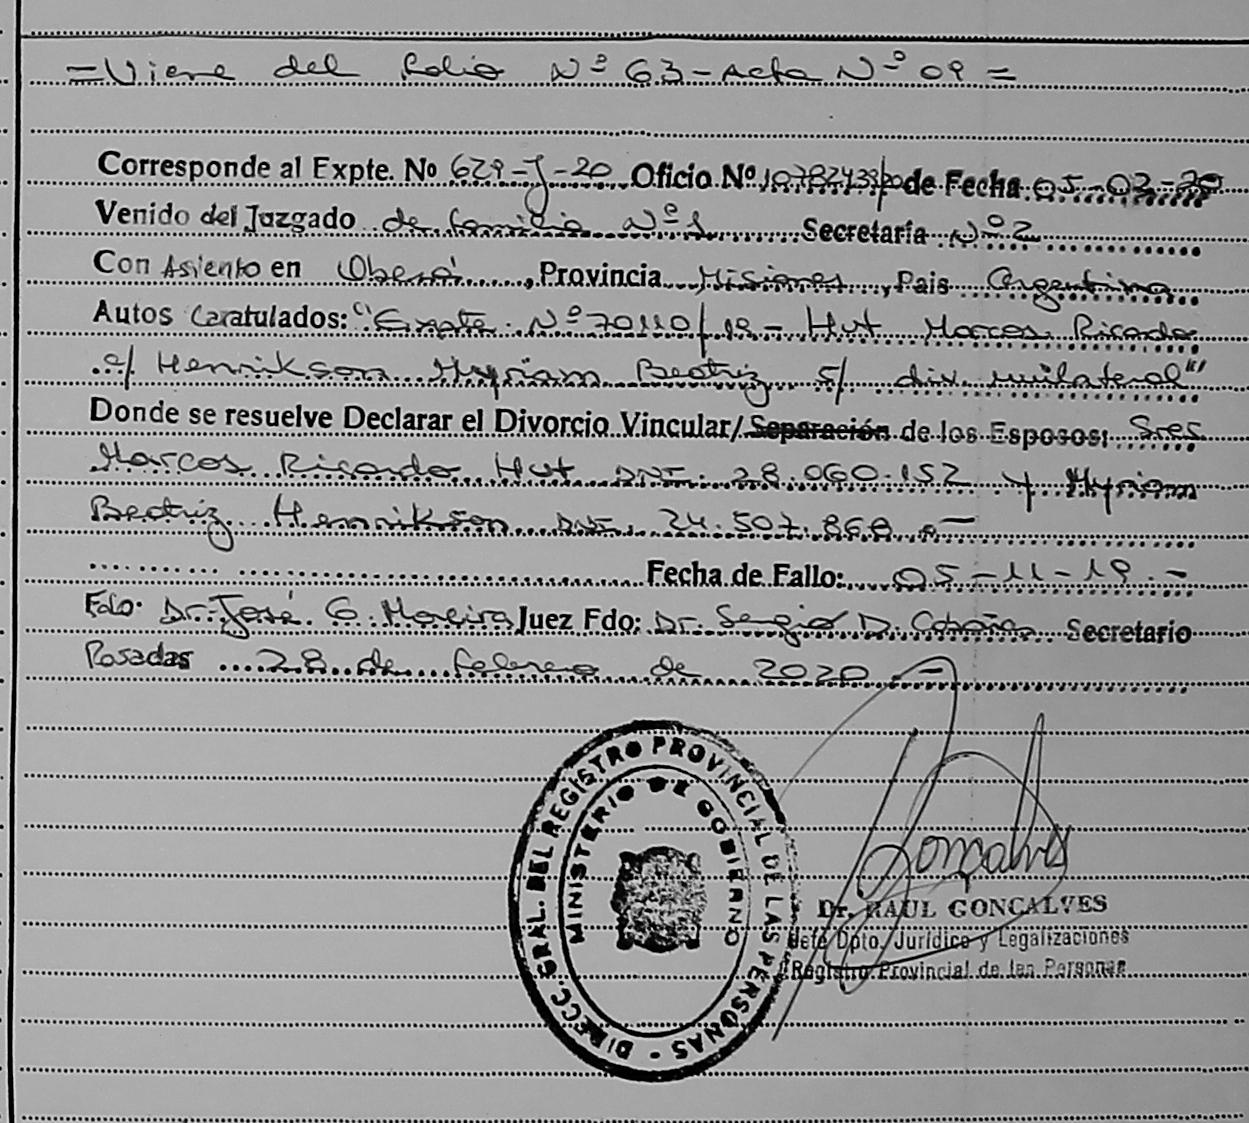 = Viene del folio Nº 63 - Acta Nº 09 =
Corresponde al Expte. No 629-J-20 Oficio Nº 10782433/20 de Fecha 05-02-20
Venido del Juzgado de Familia Nº 1 Secretaría Nº 2
Con Asiento en Oberá, Provincia Misiones, Pais Argentina
Autos Caratulados: "Expte. Nº 70110/19 - Hut Marcos Ricardo
c/ Henrikson Myriam Beatriz s/ div. unilateral"
Donde se resuelve Declarar el Divorcio Vincular/Separación de los Esposos: Sres
Marcos Ricardo Hut DNI. 28.060.152 y Myriam
Beatriz Henrikson DNI. 24.507.868.-
Fecha de Fallo: 05-11-19.-
Fdo. Dr. José G. Moreira Juez Fdo: Dr. Sergio D. Secretario
Posadas 28 de febrero de 2020.-
DIRECC. GRAL. DEL REGISTRO PROVINCIAL DE LAS PERSONAS -
MINISTERIO DE GOBIERNO
Gonçalves
Dr. RAUL GONCALVES
Jefe Dpto. Jurídico y Legalizaciones
Registro Provincial de las Personas